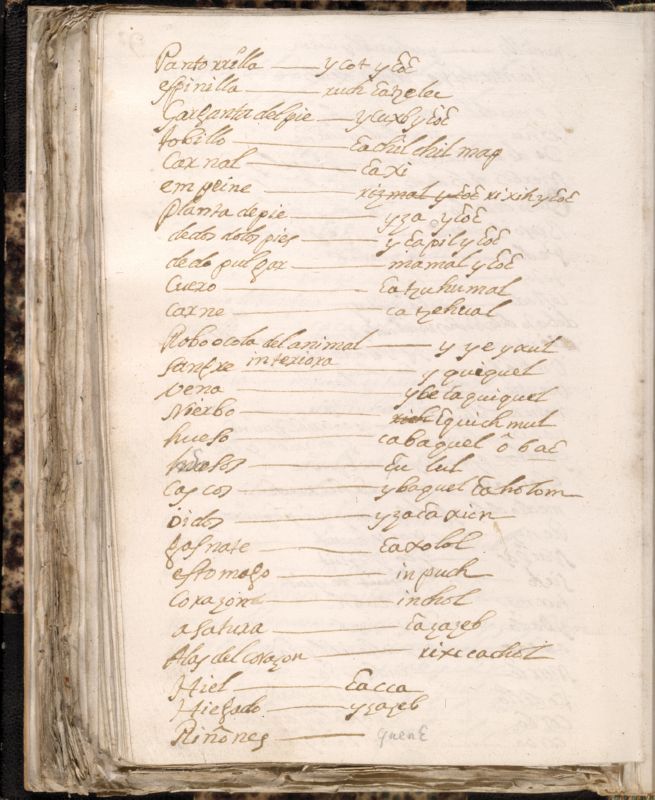 Pantorrilla — ycot yɛoɛ
espinilla — ruch ɛazelec
Garganta del pie — yluxb yɛoɛ
tobillo — ɛachil chil map
Carnal — ɛaxi
empeine — rizmal yɛoɛ rixih yɛoɛ
planta de pie — yza yɛoɛ
dedos delos pies — yɛapil yɛoɛ
dedo pulgar — mamal yɛoɛ
Cuero — ɛatzuhumal
carne — catzehual
Rabo o cola del animal — yyeyaul
sangre interiora — yquiquel
vena — ybeɛaquiquel
Nierbo — ɛquich mul
hueso — cabaquel ô baɛ
ɛu lul
Cascos — ybaquel ɛaholom
oidos — yzaɛaxicn
gasnate — ɛaxolol
estomago — inpuch
Corazon — inchol
asatura — ɛazazeb
Alas del corazon — rixicachol
Hiel — ɛacca
Higado — yzazeb
Riñones — quenɛ